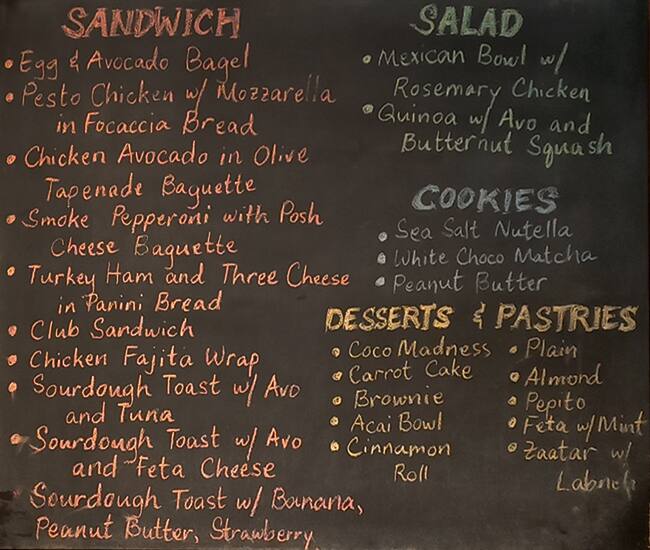 SANDWICH
• Egg & Avocado Bagel
• Pesto Chicken w/ Mozzarella
in Focaccia Bread
• Chicken Avocado in Olive
Tapenade Baguette
• Smoke Pepperoni with Posh
Cheese Baguette
• Turkey Ham and Three Cheese
in Panini Bread
• Club Sandwich
• Chicken Fajita Wrap
• Sourdough Toast w/ Avo
and Tuna
• Sourdough Toast w/ Avo
and Feta Cheese
• Sourdough Toast w/ Banana,
Peanut Butter, Strawberry
SALAD
• Mexican Bowl w/
Rosemary Chicken
• Quinoa w/ Avo and
Butternut Squash
COOKIES
• Sea Salt Nutella
• White Choco Matcha
• Peanut Butter
DESSERTS & PASTRIES
• Coco Madness
• Carrot Cake
• Brownie
• Acai Bowl
• Cinnamon
Roll
• Plain
• Almond
• Pepito
• Feta w/ Mint
• Zaatar w/
Labneh